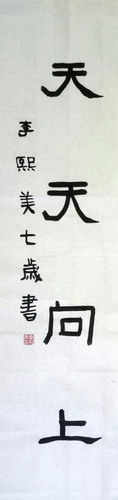 天天向上
李熙美七歲書